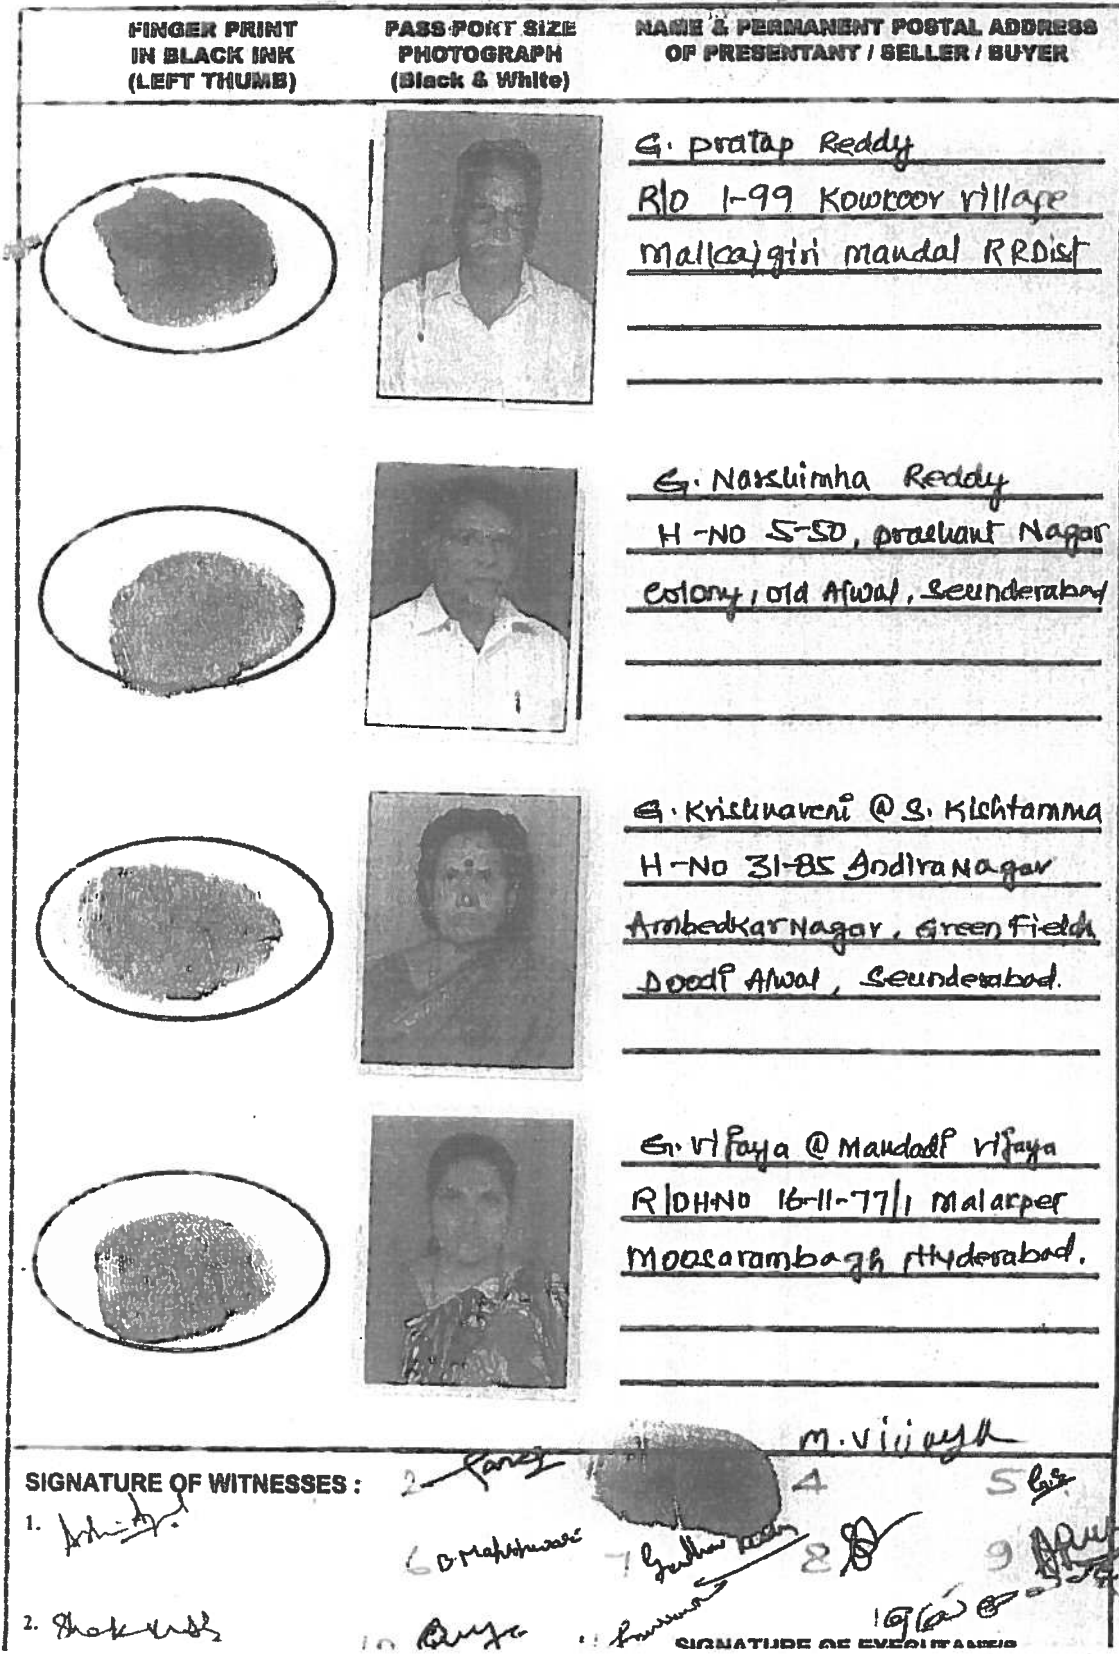 FINGER PRINT
IN BLACK INK
(LEFT THUMB)
PASS PORT SIZE
PHOTOGRAPH
(Black & White)
NAME & PERMANENT POSTAL ADDRESS
OF PRESENTANT / SELLER / BUYER
G. pratap Reddy
R/O 1-99 Kowkoor village
Malkajgiri mandal RRDist
G. Narshimha Reddy
H-NO 5-50, prashant Nagar
colony, old Alwal, Seunderabad
G. Krishnaveni @ S. Kishtamma
H-No 31-85 Indira Nagar
Ambedkar Nagar, Green Fields
Doodi Alwal, Seunderabad.
G. Vijaya @ Mandadi Vijaya
R/OHNO 16-11-77/1 Malakper
Moosarambagh, Hyderabad.
M. Vijjaya
SIGNATURE OF WITNESSES :
2
4
5
1.
6 B. Maheshwari
7
8
9
2.
10
11
SIGNATURE OF EXECUTANT/S